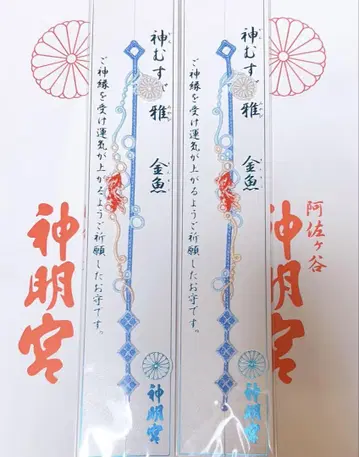 神むすび 雅 金魚
ご神縁を受け運気が上がるようご祈願したお守です。
神明宮
神むすび 雅 金魚
ご神縁を受け運気が上がるようご祈願したお守です。
神明宮
神明宮
阿佐ヶ谷
神明宮